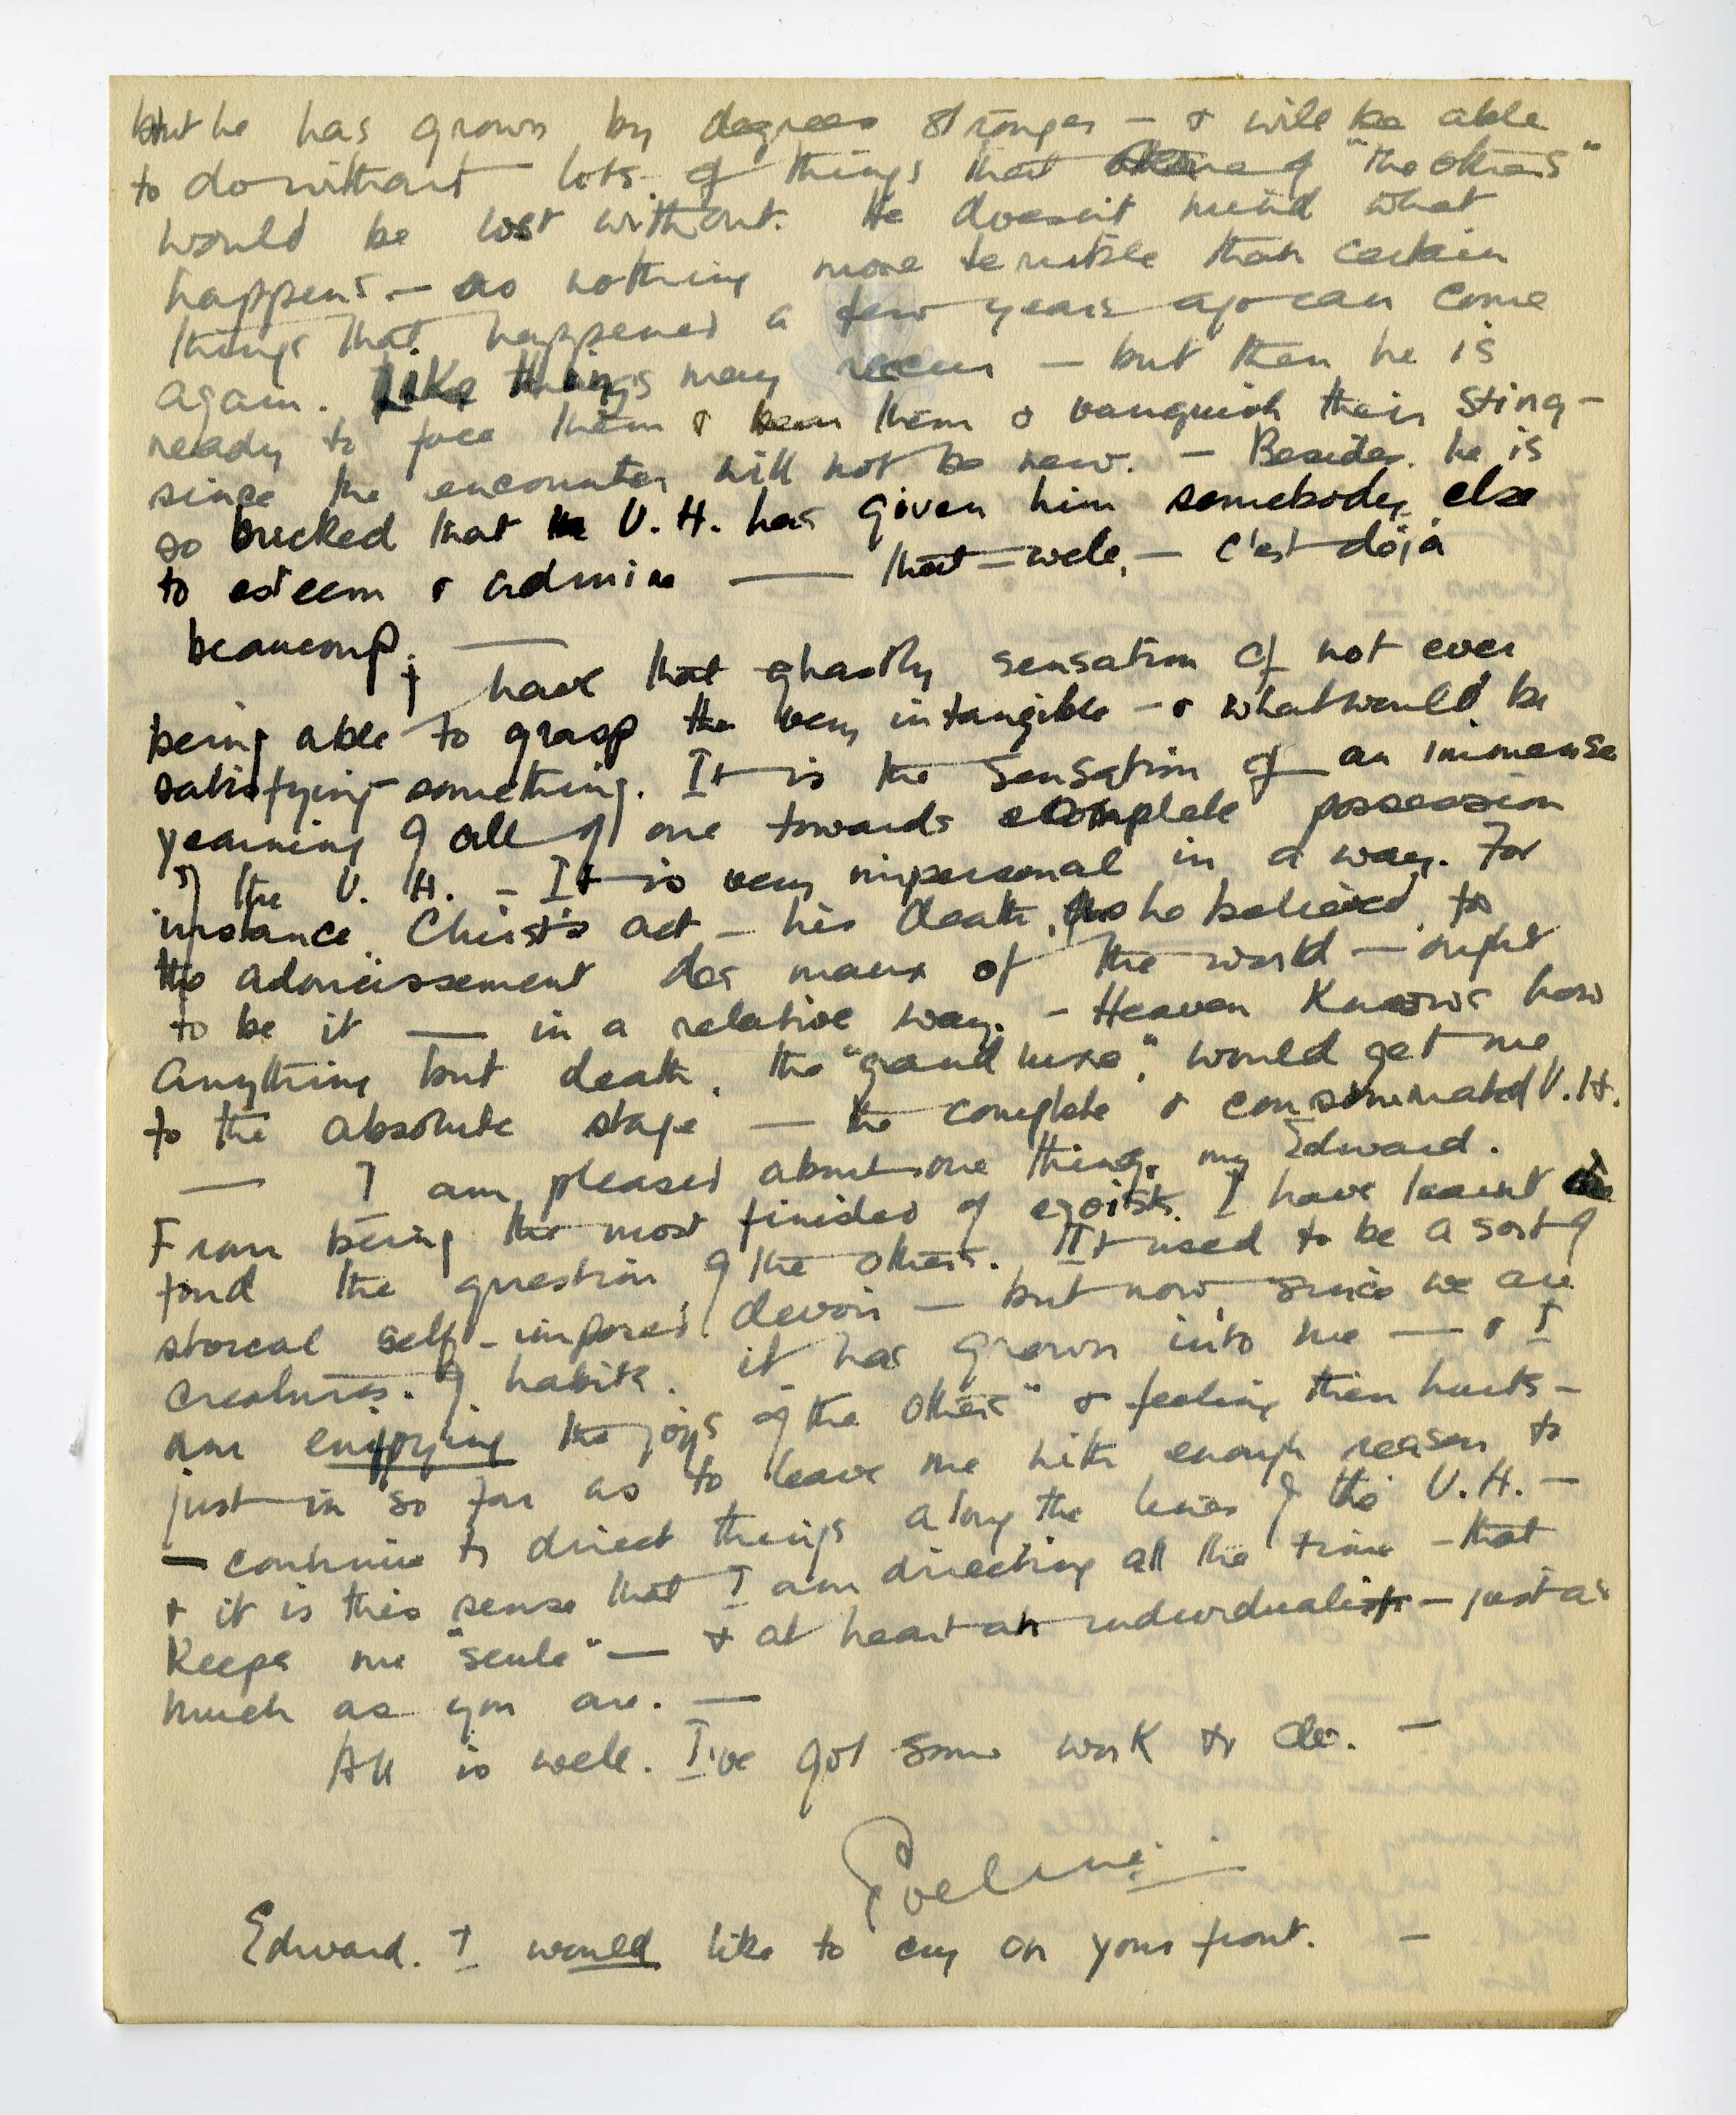 but he has grown by degrees stronger — & will be able
to do without lots of things that some of "the others"
would be lost without. He doesn't mind what
happens — as nothing more terrible than certain
things that happened a few years ago can come
again. Like things may recur — but then he is
ready to face them & bear them & vanquish their sting —
since the encounter will not be new. — Besides. he is
so bucked that the U. H. has given him somebody else
to esteem & admire — that — well, — c'est déjà
beaucoup. —
I have that ghastly sensation of not ever
being able to grasp the very intangible — & what would be
satisfying something. It is the sensation of an immense
yearning of all of one towards complete possession
of the U. H. — It is very impersonal in a way. For
instance Christ's act — his death, as he believed, to
the adoucissement des maux of the world — ought
to be it — in a relative way. — Heaven knows how
anything but death, the "grand luxe", would get me
to the absolute stage — the complete & consummated U. H.
— I am pleased about one thing, my Edward.
From being the most finished of egoists. I have learnt
fond the question of the others. It used to be a sort of
stoical self-imposed devoir — but now, since we are
creatures of habits. it has grown into me — & I
am enjoying the joys of "the others" & feeling their hurts —
just in so far as to leave me with enough reason to
— continue to direct things along the lines of the U. H. —
& it is this sense that I am directing all the time — that
keeps me "seule" — & at heart an individualist — just as
much as you are. —
All is well. I've got some work to do. —
Eveline
Edward. I would like to cry on your front. —